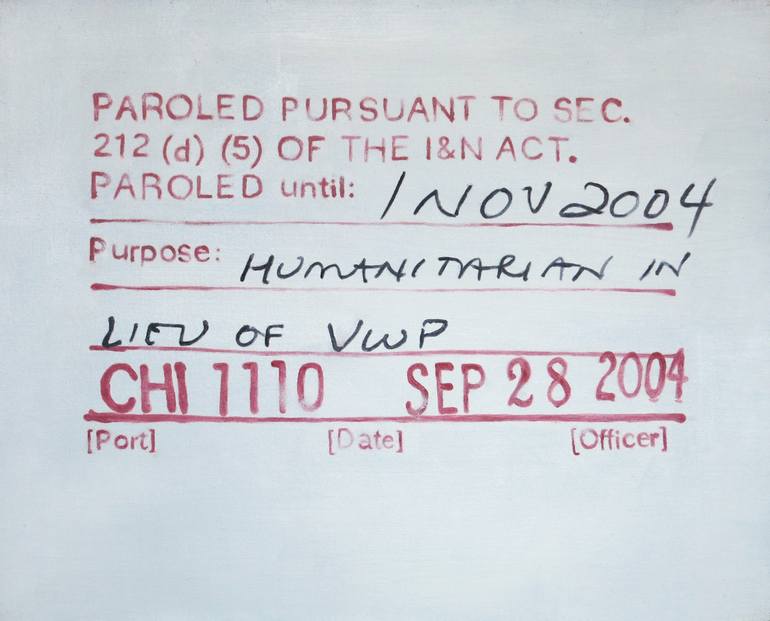 PAROLED PURSUANT TO SEC.
212 (d) (5) OF THE I&N ACT.
PAROLED until: 1 NOV 2004
Purpose: HUMANITARIAN IN
LIEU OF VWP
CHI 1110 SEP 28 2004
[Port] [Date] [Officer]